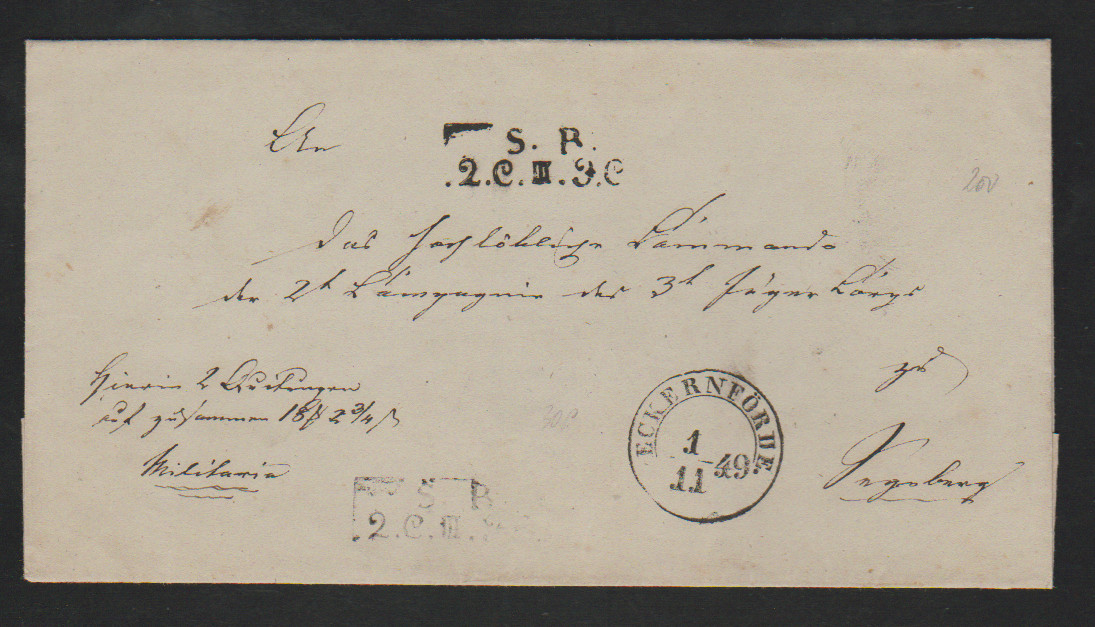 An
S. B.
.2.C.III.3.C
das hochlöbliche Commando
der 2t Compagnie des 3t Jäger Corps
zu
Segeberg
Hierin 2 Quitungen
auf zusammen 18 2 3/4
Militaria
ECKERNFÖRDE
1/11 49.
S B
.2.C.III.
200